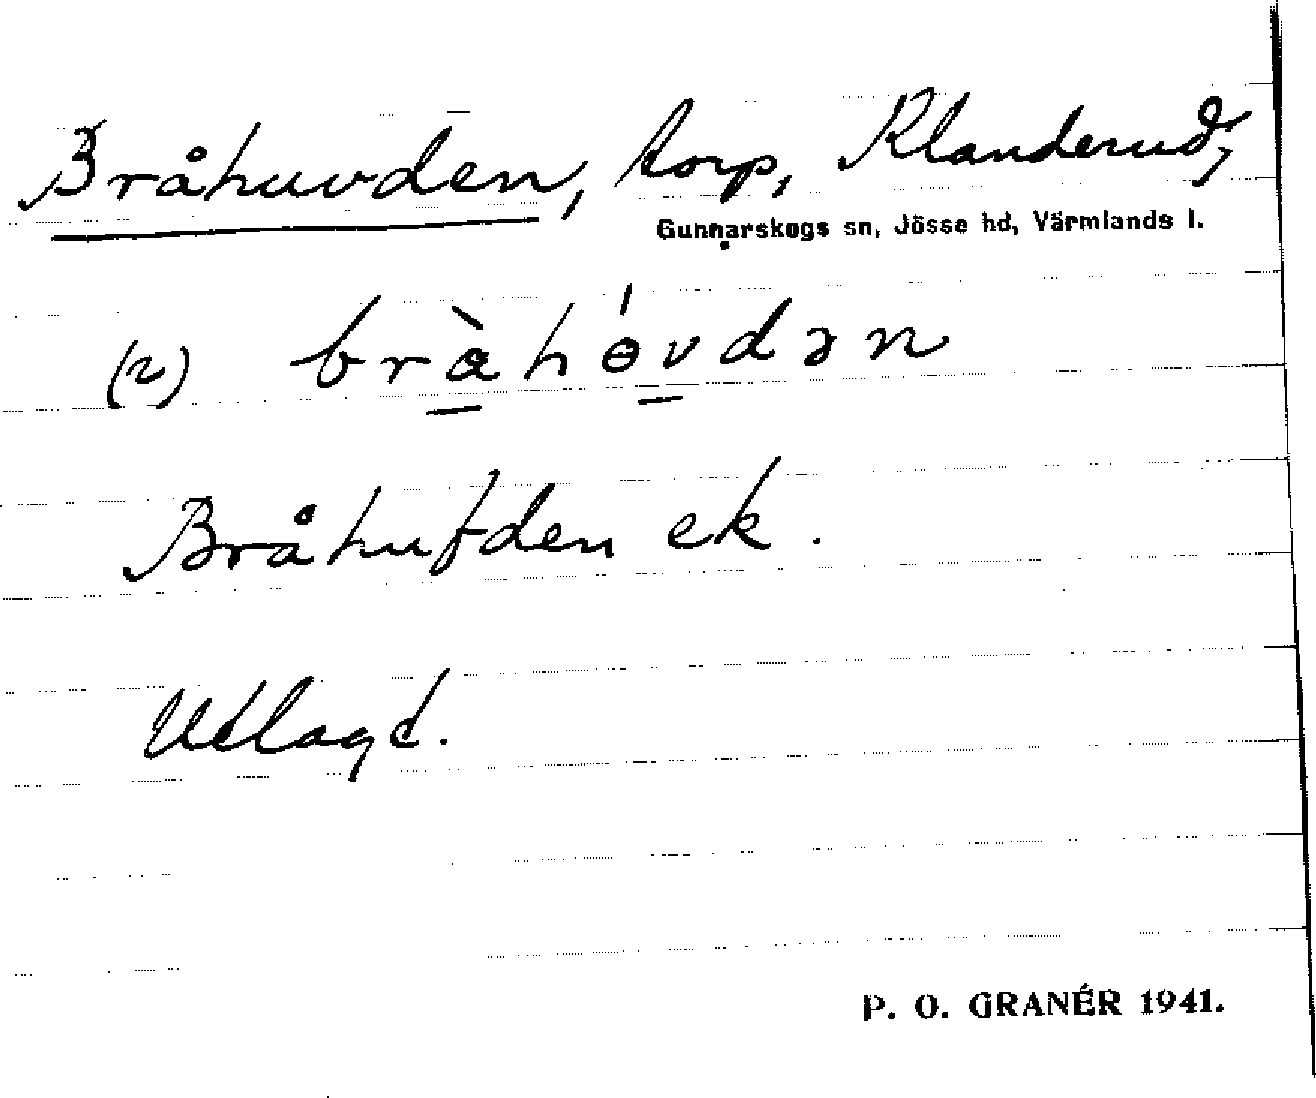 Bråhuvden, torp, Klanderud,
Gunnarskogs sn, Jösse hd, Värmlands l.
(2) bràhɵ́vdən
Bråhufden ek.
Utlagt.
P. O. GRANÉR 1941.